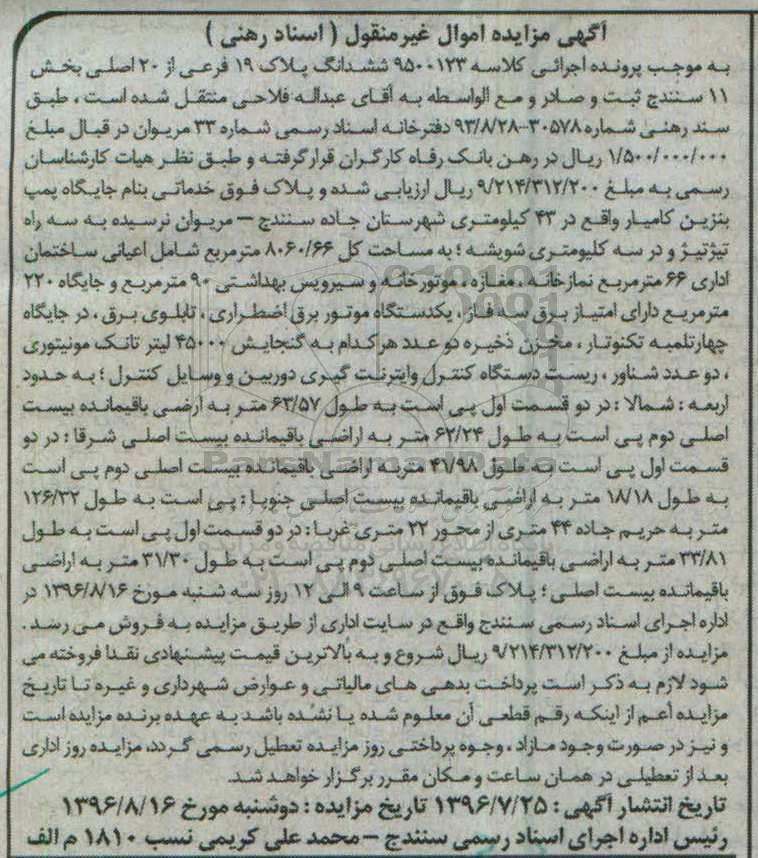 آگهی مزایده اموال غیرمنقول ( اسناد رهنی )
به موجب پرونده اجرائی کلاسه ۹۵۰۰۱۲۳ ششدانگ پلاک ۱۹ فرعی از ۲۰ اصلی بخش
۱۱ سنندج ثبت و صادر و مع الواسطه به آقای عبداله فلاحی منتقل شده است ، طبق
سند رهنی شماره ۳۰۵۷۸-۹۳/۸/۲۸ دفترخانه اسناد رسمی شماره ۳۳ مریوان در قبال مبلغ
۱/۵۰۰/۰۰۰/۰۰۰ ریال در رهن بانک رفاه کارگران قرارگرفته و طبق نظر هیات کارشناسان
رسمی به مبلغ ۹/۲۱۴/۳۱۲/۲۰۰ ریال ارزیابی شده و پلاک فوق خدماتی بنام جایگاه پمپ
بنزین کامیار واقع در ۴۳ کیلومتری شهرستان جاده سنندج – مریوان نرسیده به سه راه
تیژتیژ و در سه کلیومتری شویشه ؛ به مساحت کل ۸۰۶۰/۶۶ مترمربع شامل اعیانی ساختمان
اداری ۶۶ مترمربع نمازخانه ، مغازه ، موتورخانه و سیرویس بهداشتی ۹۰ مترمربع و جایگاه ۲۲۰
مترمربع دارای امتیاز برق سه فاز ، یکدستگاه موتور برق اضطراری ، تابلوی برق ، در جایگاه
چهارتلمبه تکنوتار ، مخزن ذخیره دو عدد هرکدام به گنجایش ۴۵۰۰۰ لیتر تانک مونیتوری
، دو عدد شناور ، ریست دستگاه کنترل واینترنت گیری دوربین و وسایل کنترل ؛ به حدود
اربعه : شمالا : در دو قسمت اول پی است به طول ۶۳/۵۷ متر به ارضی باقیمانده بیست
اصلی دوم پی است به طول ۶۲/۲۴ متر به اراضی باقیمانده بیست اصلی شرقا : در دو
قسمت اول پی است به طول ۴۱/۹۸ متربه اراضی باقیمانده بیست اصلی دوم پی است
به طول ۱۸/۱۸ متر به اراضی باقیمانده بیست اصلی جنوبا : پی است به طول ۱۲۶/۳۲
متر به حریم جاده ۴۴ متری از محور ۲۲ متری غربا : در دو قسمت اول پی است به طول
۳۳/۸۱ متر به اراضی باقیمانده بیست اصلی دوم پی است به طول ۳۱/۳۰ متر به اراضی
باقیمانده بیست اصلی ؛ پلاک فوق از ساعت ۹ الی ۱۲ روز سه شنبه مورخ ۱۳۹۶/۸/۱۶ در
اداره اجرای اسناد رسمی سنندج واقع در سایت اداری از طریق مزایده به فروش می رسد .
مزایده از مبلغ ۹/۲۱۴/۳۱۲/۲۰۰ ریال شروع و به بالاترین قیمت پیشنهادی نقدا فروخته می
شود لازم به ذکر است پرداخت بدهی های مالیاتی و عوارض شهرداری و غیره تا تاریخ
مزایده اعم از اینکه رقم قطعی آن معلوم شده یا نشده باشد به عهده برنده مزایده است
و نیز در صورت وجود مازاد ، وجوه پرداختی روز مزایده تعطیل رسمی گردد، مزایده روز اداری
بعد از تعطیلی در همان ساعت و مکان مقرر برگزار خواهد شد.
تاریخ انتشار آگهی : ۱۳۹۶/۷/۲۵ تاریخ مزایده : دوشنبه مورخ ۱۳۹۶/۸/۱۶
رئیس اداره اجرای اسناد رسمی سنندج – محمد علی کریمی نسب ۱۸۱۰ م الف